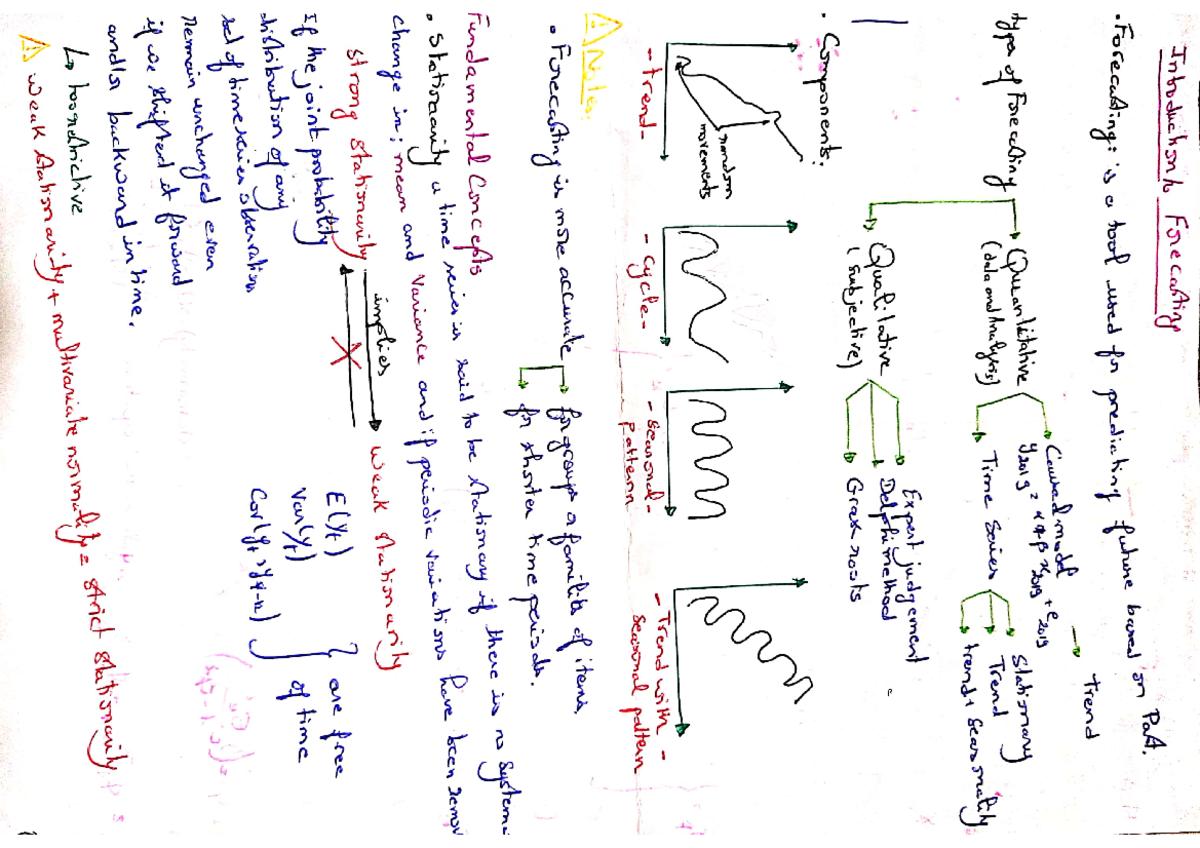 Introduction to Forecasting
• Forecasting: is a tool used for predicting future based on Past.
type of Forecasting
Quantitative
(data and Analysis)
Causal model
y2019 = α + β x2019 + e2019
→ trend
Time Series
Stationary
Trend
trend + Seasonality
Qualitative
(Subjective)
Expert judgement
Delphi method
Grass roots
• Components:
random
movements
- trend -
- Cycle -
- Seasonal -
pattern
- Trend with -
Seasonal pattern
Notes:
• Forecasting is more accurate
for groups of families of items,
for shorter time periods.
Fundamental Concepts
• Stationarity a time series is said to be stationary if there is no system
change in; mean and Variance and if periodic variations have been remov
Strong Stationarity
implies
weak stationarity
If the joint probability
distribution of any
set of time series observation
Remain unchanged even
if we shifted it forward
and/or backward in time.
E(yt)
Var(yt)
are free
of time
↳ too restrictive
weak stationarity + multivariate normality = strict stationarity